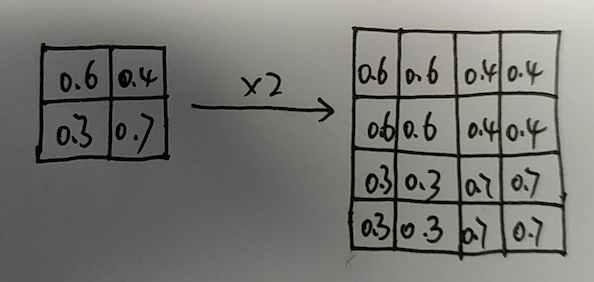 0.6 0.4
0.3 0.7
×2
0.6 0.6 0.4 0.4
0.6 0.6 0.4 0.4
0.3 0.3 0.7 0.7
0.3 0.3 0.7 0.7